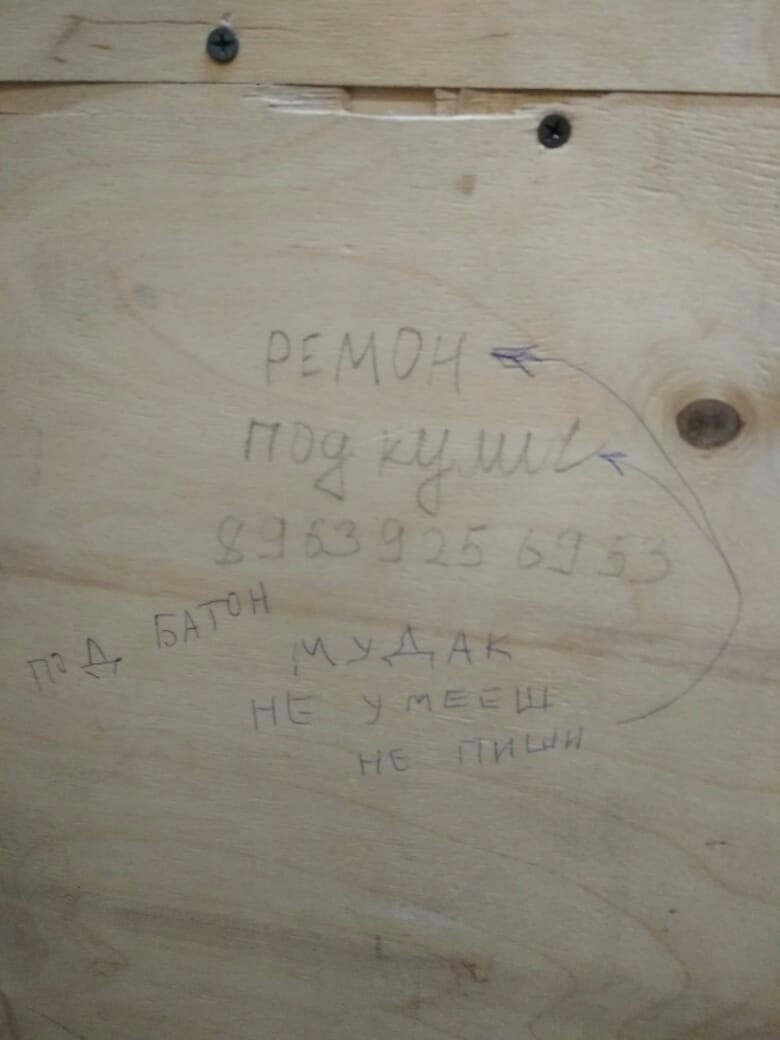 РЕМОН
под кулич
8963 925 6953
ПОД БАТОН
МУДАК
НЕ УМЕЕШ
НЕ ПИШИ